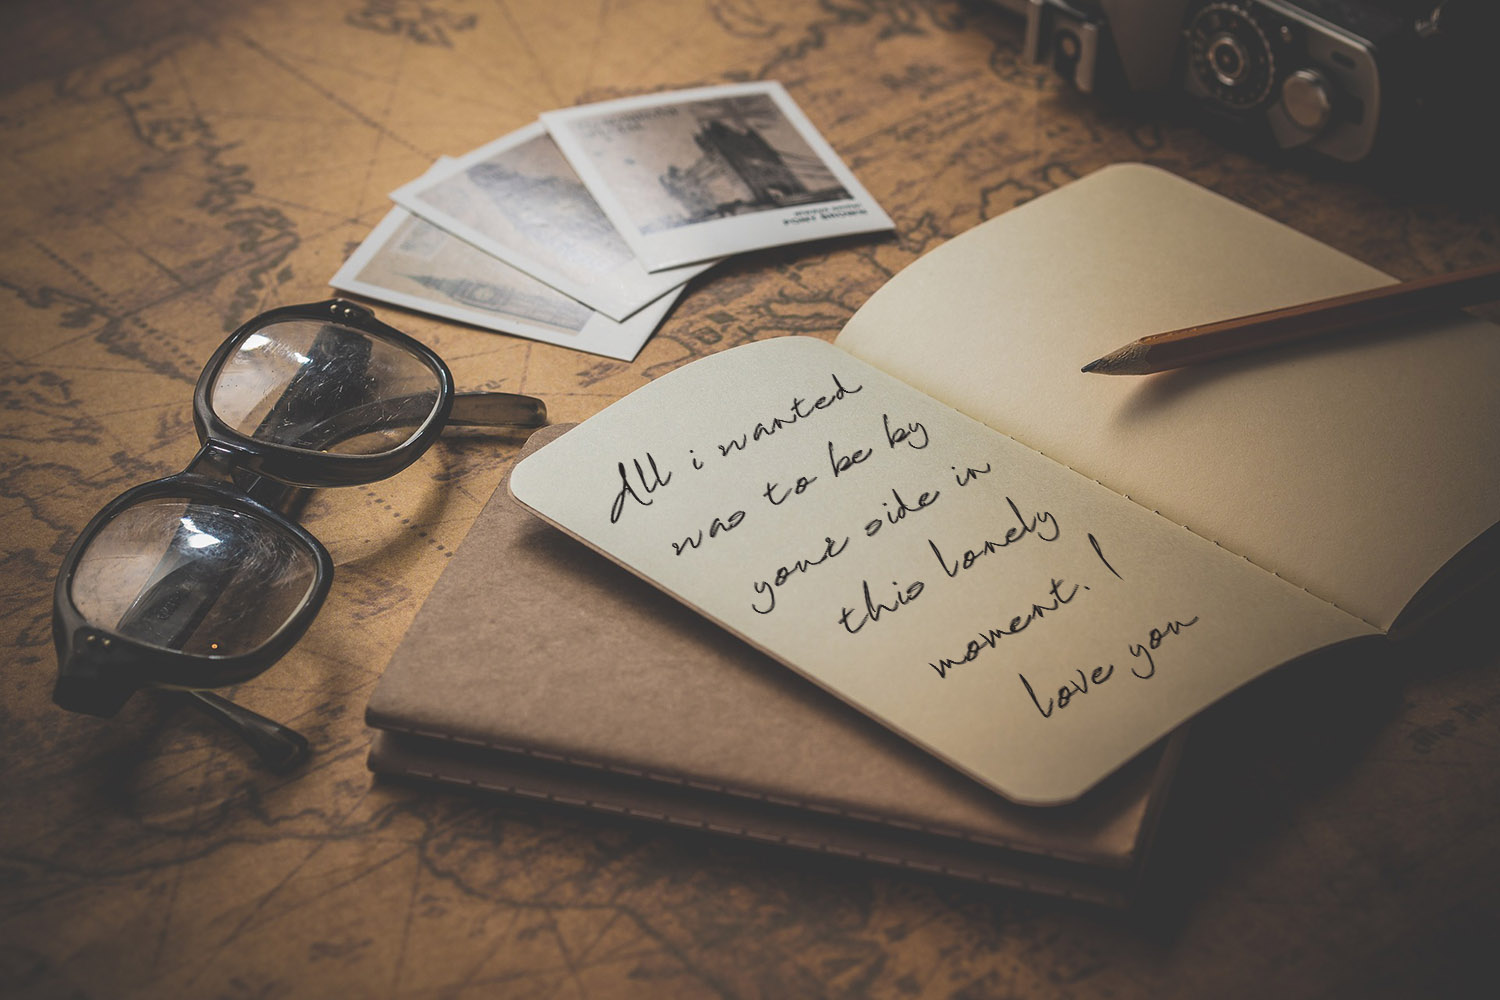 All i wanted
was to be by
your side in
this lonely
moment. I
love you